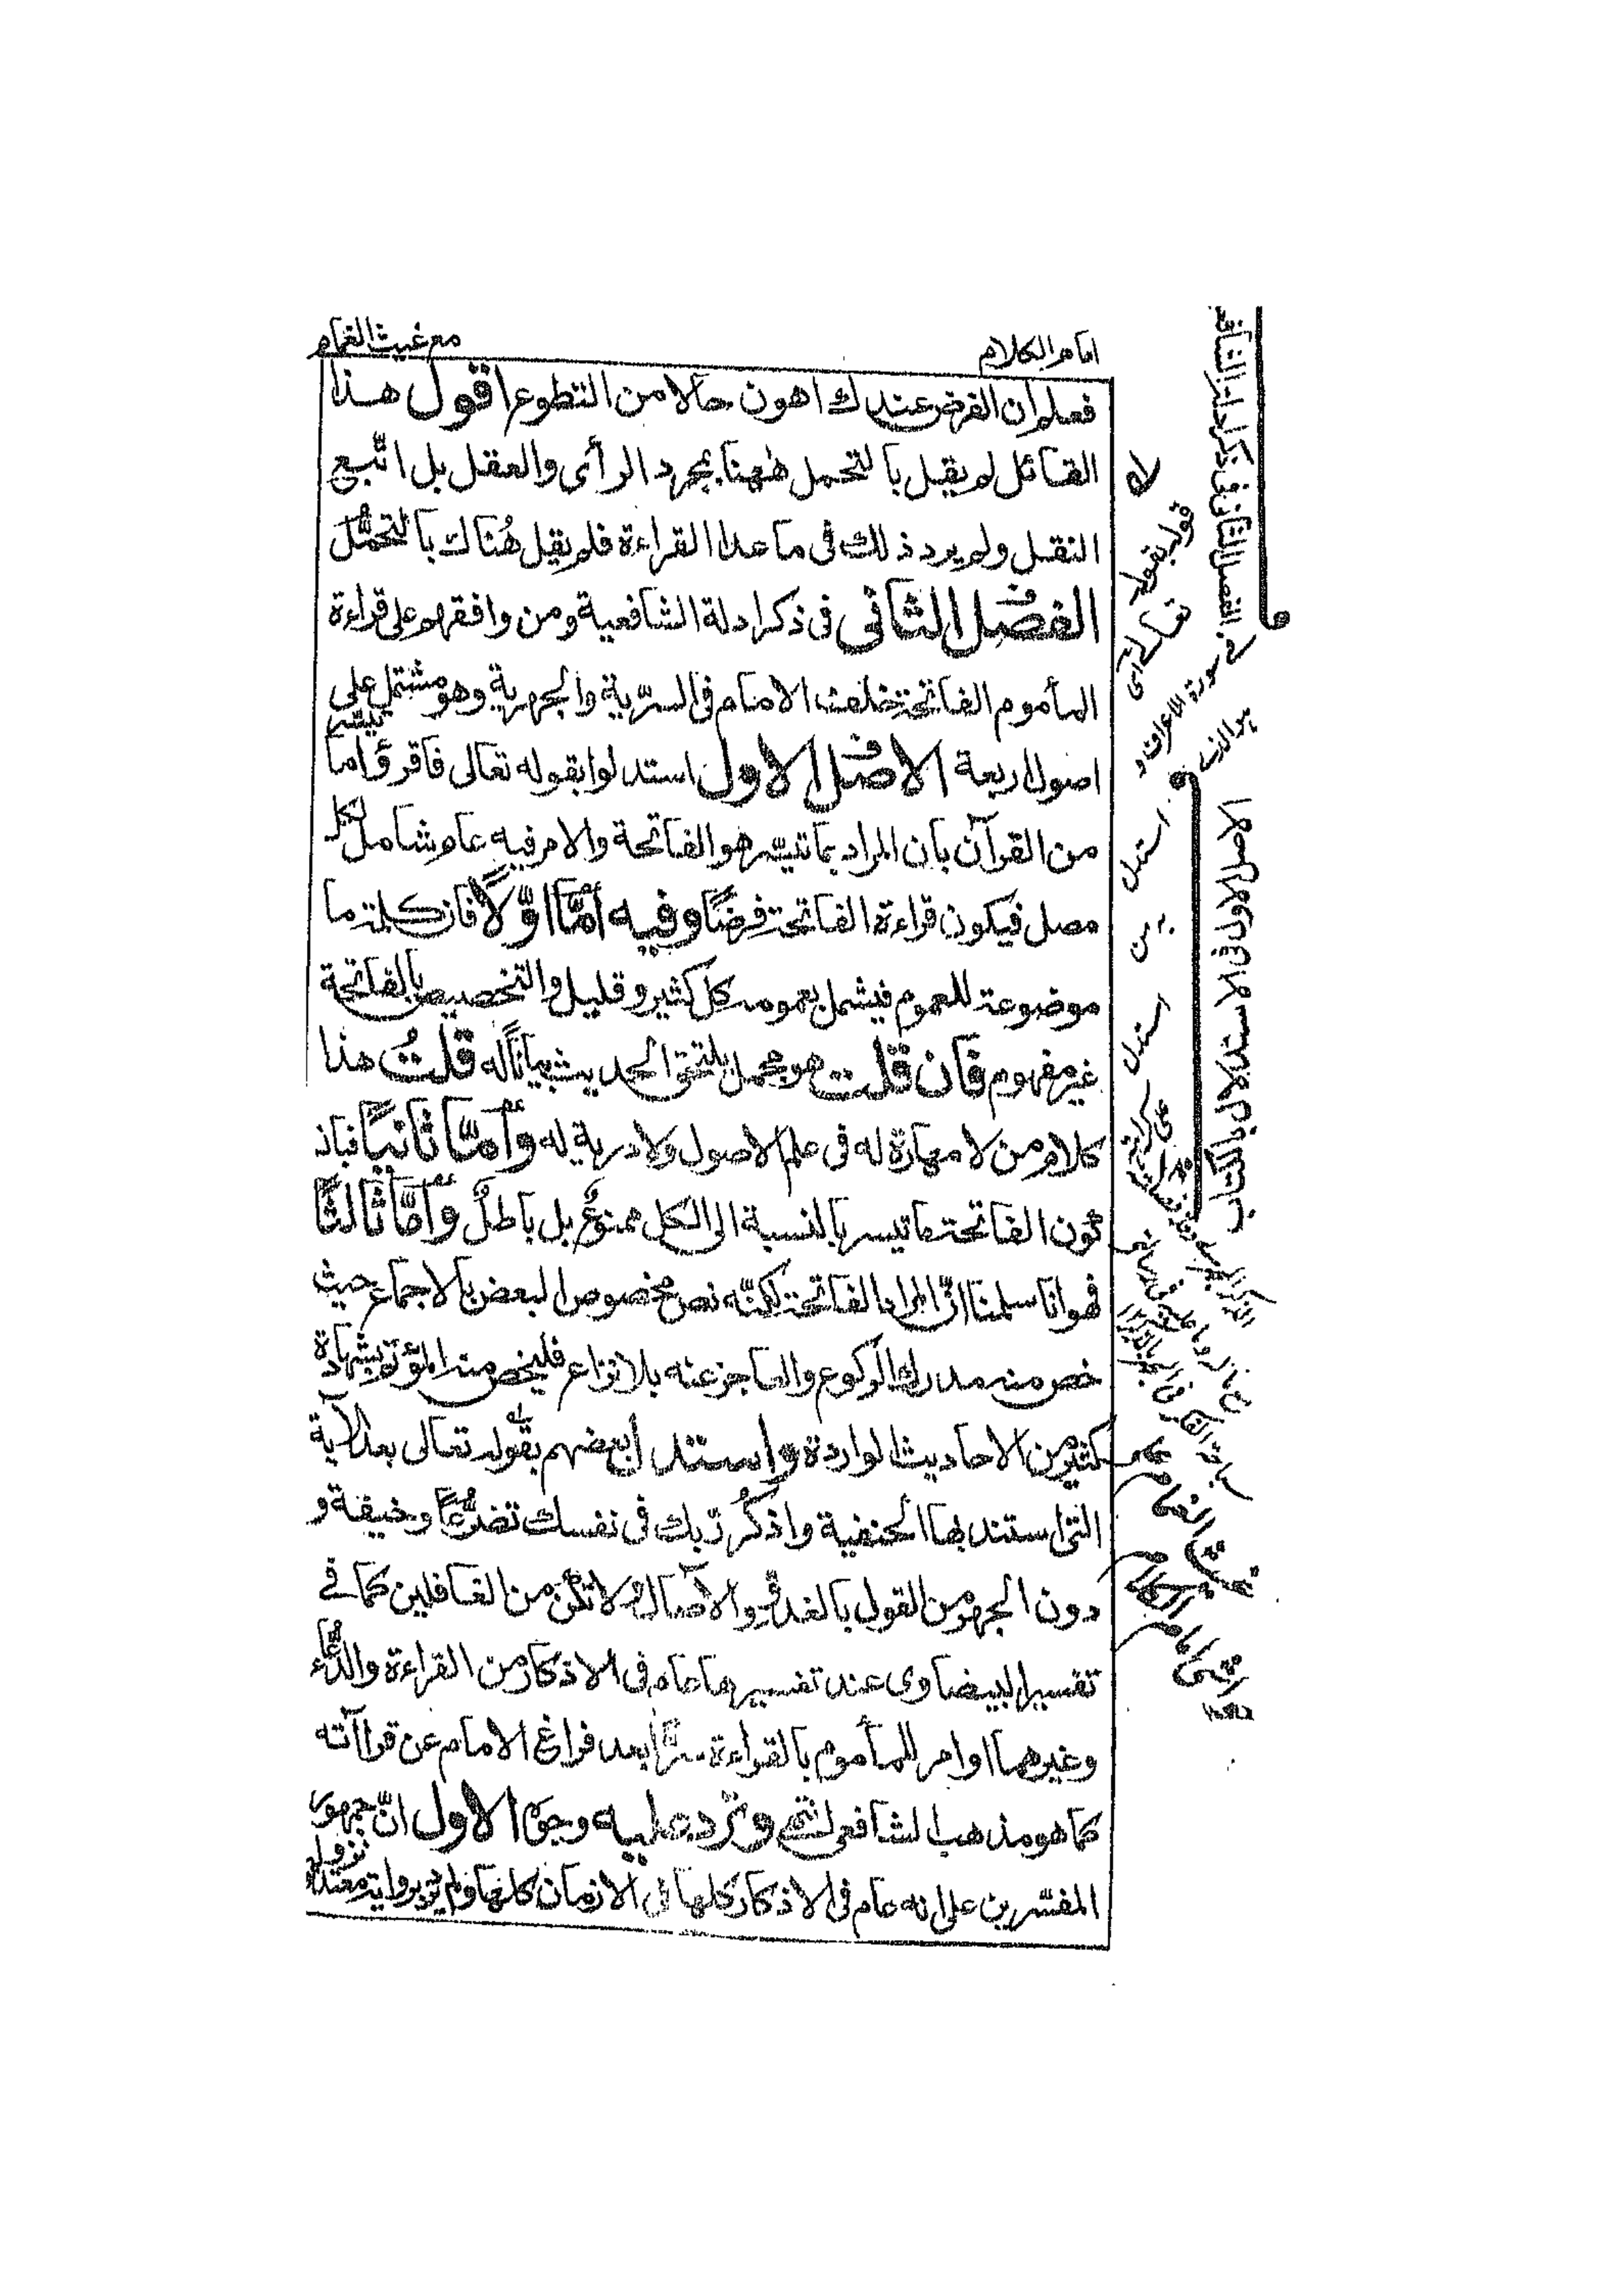 امام الكلام
مع غيث الغمام
فعلم ان الفرض عندك اهون حالا من التطوع اقول هذا
القائل لم يقل بالتحمل ههنا بمجرد الرأى والعقل بل اتبع
النقل ولم يرد ذلك فى ما عدا القراءة فلم يقل هُناك بالتحمُّل
الفصل الثانى فى ذكر ادلة الشافعية ومن وافقهم على قراءة
المأموم الفاتحة خلف الامام فى السرّية والجهرية وهو مشتمل على
اصول اربعة الاصل الاول استدلوا بقوله تعالى فاقرؤا ما تيسّر
من القرآن بان المراد بما تيسّر هو الفاتحة والامر فيه عام شامل لكل
مصل فيكون قراءة الفاتحة فرضًا وفيه أمّا اوّلًا فان كلمة ما
موضوعة للعموم فيشمل بعمومه كل كثير وقليل والتخصيص بالفاتحة
غير مفهوم فان قلت هو مجمل يلتحق الحديث بيانًا له قلتُ هذا
كلام من لا مهارة له فى علم الاصول ولا دربة له وأمّا ثانيًا فبان
كون الفاتحة ما تيسر بالنسبة الى الكل ممنوعٌ بل باطلٌ وأمّا ثالثًا
فهو انا سلمنا انّ المراد الفاتحة لكنّه نص مخصوص البعض بالاجماع حيث
خص منه مدرك الركوع والعاجز عنه بلا نزاع فليخص منه المؤتم بشهادة
كثير من الاحاديث الواردة واستدل بعضهم بقوله تعالى بعد الآية
التى استند بها الحنفية واذكُر رّبك فى نفسك تضرُّعًا وخيفة و
دون الجهر من القول بالغدوّ والآصال ولا تكن من الغافلين كما فى
تفسير البيضاوى عند تفسيرها عام فى الاذكار من القراءة والدُّعاء
وغيرهما او امر للمأموم بالقراءة سرًّا بعد فراغ الامام عن قراآته
كما هو مذهب الشافعى انتهى وترد عليه وجوه الاول انّ جمهور
المفسّرين على انه عام فى الاذكار كلها فى الازمان كلها ولم يرد برواية معتمدة نزوله
له
قوله بقوله
تعالى آى
فى سورة الاعراف
استدل
به من
استدل